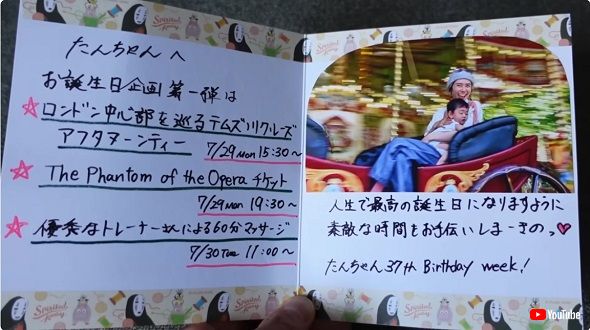 たんちゃんへ
お誕生日企画第一弾は
☆ロンドン中心部を巡るテムズ川クルーズ
アフタヌーンティー
7/29 MON 15:30〜
☆ The Phantom of the Opera チケット
7/29 MON 19:30〜
☆ 優秀なトレーナーさんによる60分マッサージ
7/30 Tue 11:00〜
人生で最高の誕生日になりますように
素敵な時間をお手伝いしまーきのっ♥
たんちゃん37th Birthday week!
Spirited Away
Spirited Away
YouTube